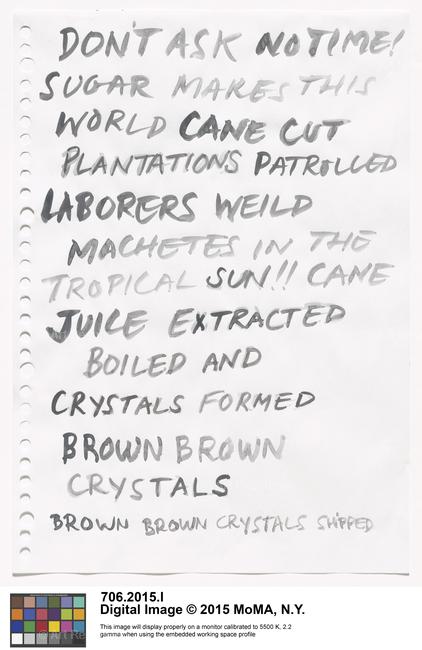 DON'T ASK NO TIME!
SUGAR MAKES THIS
WORLD CANE CUT
PLANTATIONS PATROLLED
LABORERS WEILD
MACHETES IN THE
TROPICAL SUN!! CANE
JUICE EXTRACTED
BOILED AND
CRYSTALS FORMED
BROWN BROWN
CRYSTALS
BROWN BROWN CRYSTALS SHIPPED
706.2015.I
Digital Image © 2015 MoMA, N.Y.
This image will display properly on a monitor calibrated to 5500 K, 2.2
gamma when using the embedded working space profile